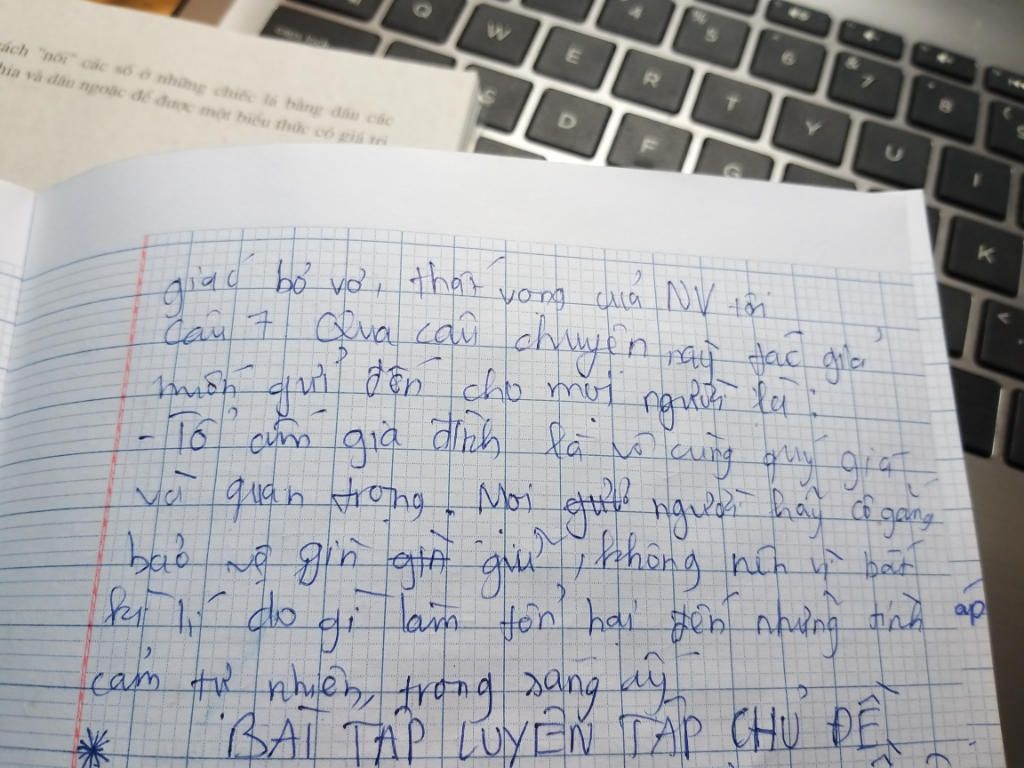 ách "nối" các số ở những chiếc lá bằng dấu các
hia và dấu ngoặc để được một biểu thức có giá trị
giác bơ vơ, thất vọng của NV tôi
Câu 7 Qua câu chuyện này tác giả
muốn gửi đến cho mọi người là:
- Tổ ấm gia đình là vô cùng quý giá
và quan trọng. Mọi người hãy cố gắng
bảo vệ gìn giữ, không nên vì bất
kì lí do gì làm tổn hại đến những tình
cảm tự nhiên, trong sáng ấy
ấp
* BÀI TẬP LUYỆN TẬP CHỦ ĐỀ
Q W E R T Y U I
4 5 6 7 8
S D F G K